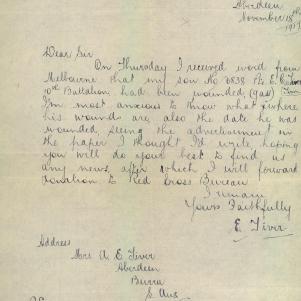 Aberdeen
November 18th
1917
Dear Sir
On Thursday I received word from
Melbourne that my son No 6838 Pte E. Tiver
Battalion, had been wounded, (gas)
I'm most anxious to know what & where
his wounds are, also the date he was
wounded, seeing the advertisement in
the paper I thought I'd write hoping
you will do your best to find us
any news, after which I will forward
donation to Red Cross Bureau
I remain
Yours Faithfully
E Tiver
Address
Mrs A. E Tiver
Aberdeen
Burra
S. Aus